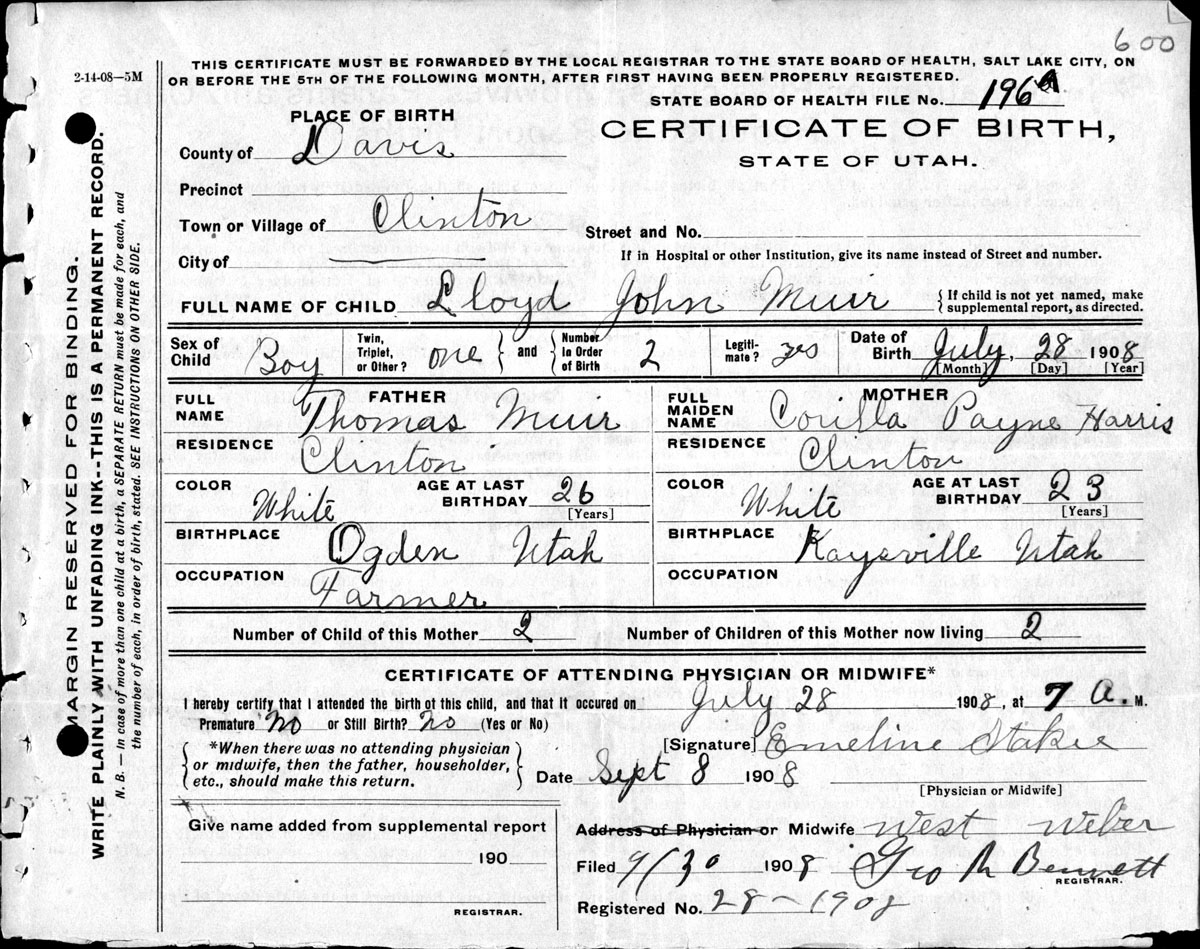 600
2-14-08—5M
THIS CERTIFICATE MUST BE FORWARDED BY THE LOCAL REGISTRAR TO THE STATE BOARD OF HEALTH, SALT LAKE CITY, ON
OR BEFORE THE 5TH OF THE FOLLOWING MONTH, AFTER FIRST HAVING BEEN PROPERLY REGISTERED.
STATE BOARD OF HEALTH FILE No. 196A
PLACE OF BIRTH
CERTIFICATE OF BIRTH,
STATE OF UTAH.
County of Davis
Precinct
Town or Village of Clinton
Street and No.
City of
If in Hospital or other Institution, give its name instead of Street and number.
FULL NAME OF CHILD Lloyd John Muir { If child is not yet named, make supplemental report, as directed.
Sex of Child Boy Twin, Triplet, or Other? one } and { Number in Order of Birth 2 Legiti-mate? yes Date of Birth July, 28 1908
[Month] [Day] [Year]
FATHER
FULL NAME Thomas Muir
RESIDENCE Clinton
COLOR White AGE AT LAST BIRTHDAY 26
[Years]
BIRTHPLACE Ogden Utah
OCCUPATION Farmer
MOTHER
FULL MAIDEN NAME Corilla Payne Harris
RESIDENCE Clinton
COLOR White AGE AT LAST BIRTHDAY 23
[Years]
BIRTHPLACE Kaysville Utah
OCCUPATION
Number of Child of this Mother 2 Number of Children of this Mother now living 2
CERTIFICATE OF ATTENDING PHYSICIAN OR MIDWIFE*
I hereby certify that I attended the birth of this child, and that it occured on July 28 1908, at 7 A. M.
Premature No or Still Birth? No (Yes or No)
[Signature] Emeline
{ *When there was no attending physician
or midwife, then the father, householder,
etc., should make this return. }
Date Sept 8 1908
[Physician or Midwife]
Give name added from supplemental report
190
REGISTRAR.
Address of Physician or Midwife West Weber
Filed 9/30 1908 Geo R Bennett
REGISTRAR.
Registered No. 28-1908
MARGIN RESERVED FOR BINDING.
WRITE PLAINLY WITH UNFADING INK--THIS IS A PERMANENT RECORD.
N. B.—In case of more than one child at a birth, a SEPARATE RETURN must be made for each, and
the number of each, in order of birth, stated. SEE INSTRUCTIONS ON OTHER SIDE.